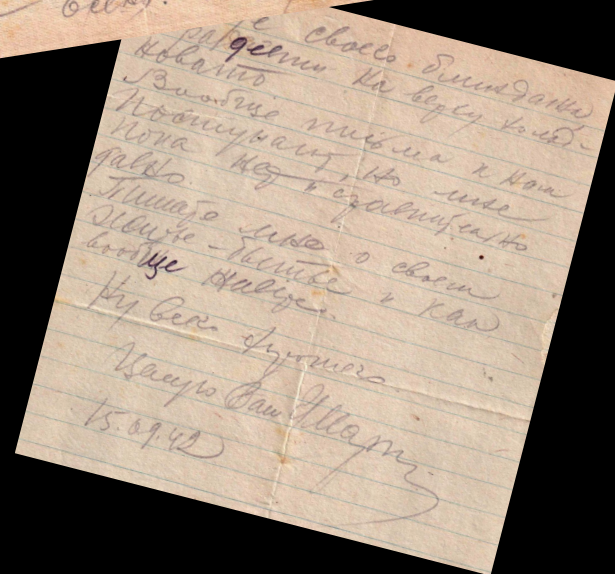 своего блиндажа,
на верху холод-
новато
Вообще письма к нам
поступают, но мне
пока нет и сравнительно
давно.
Пишите мне о своем
житье-бытье и как
вообще
Ну всего лучшего
Целую Ваш
15.09.42